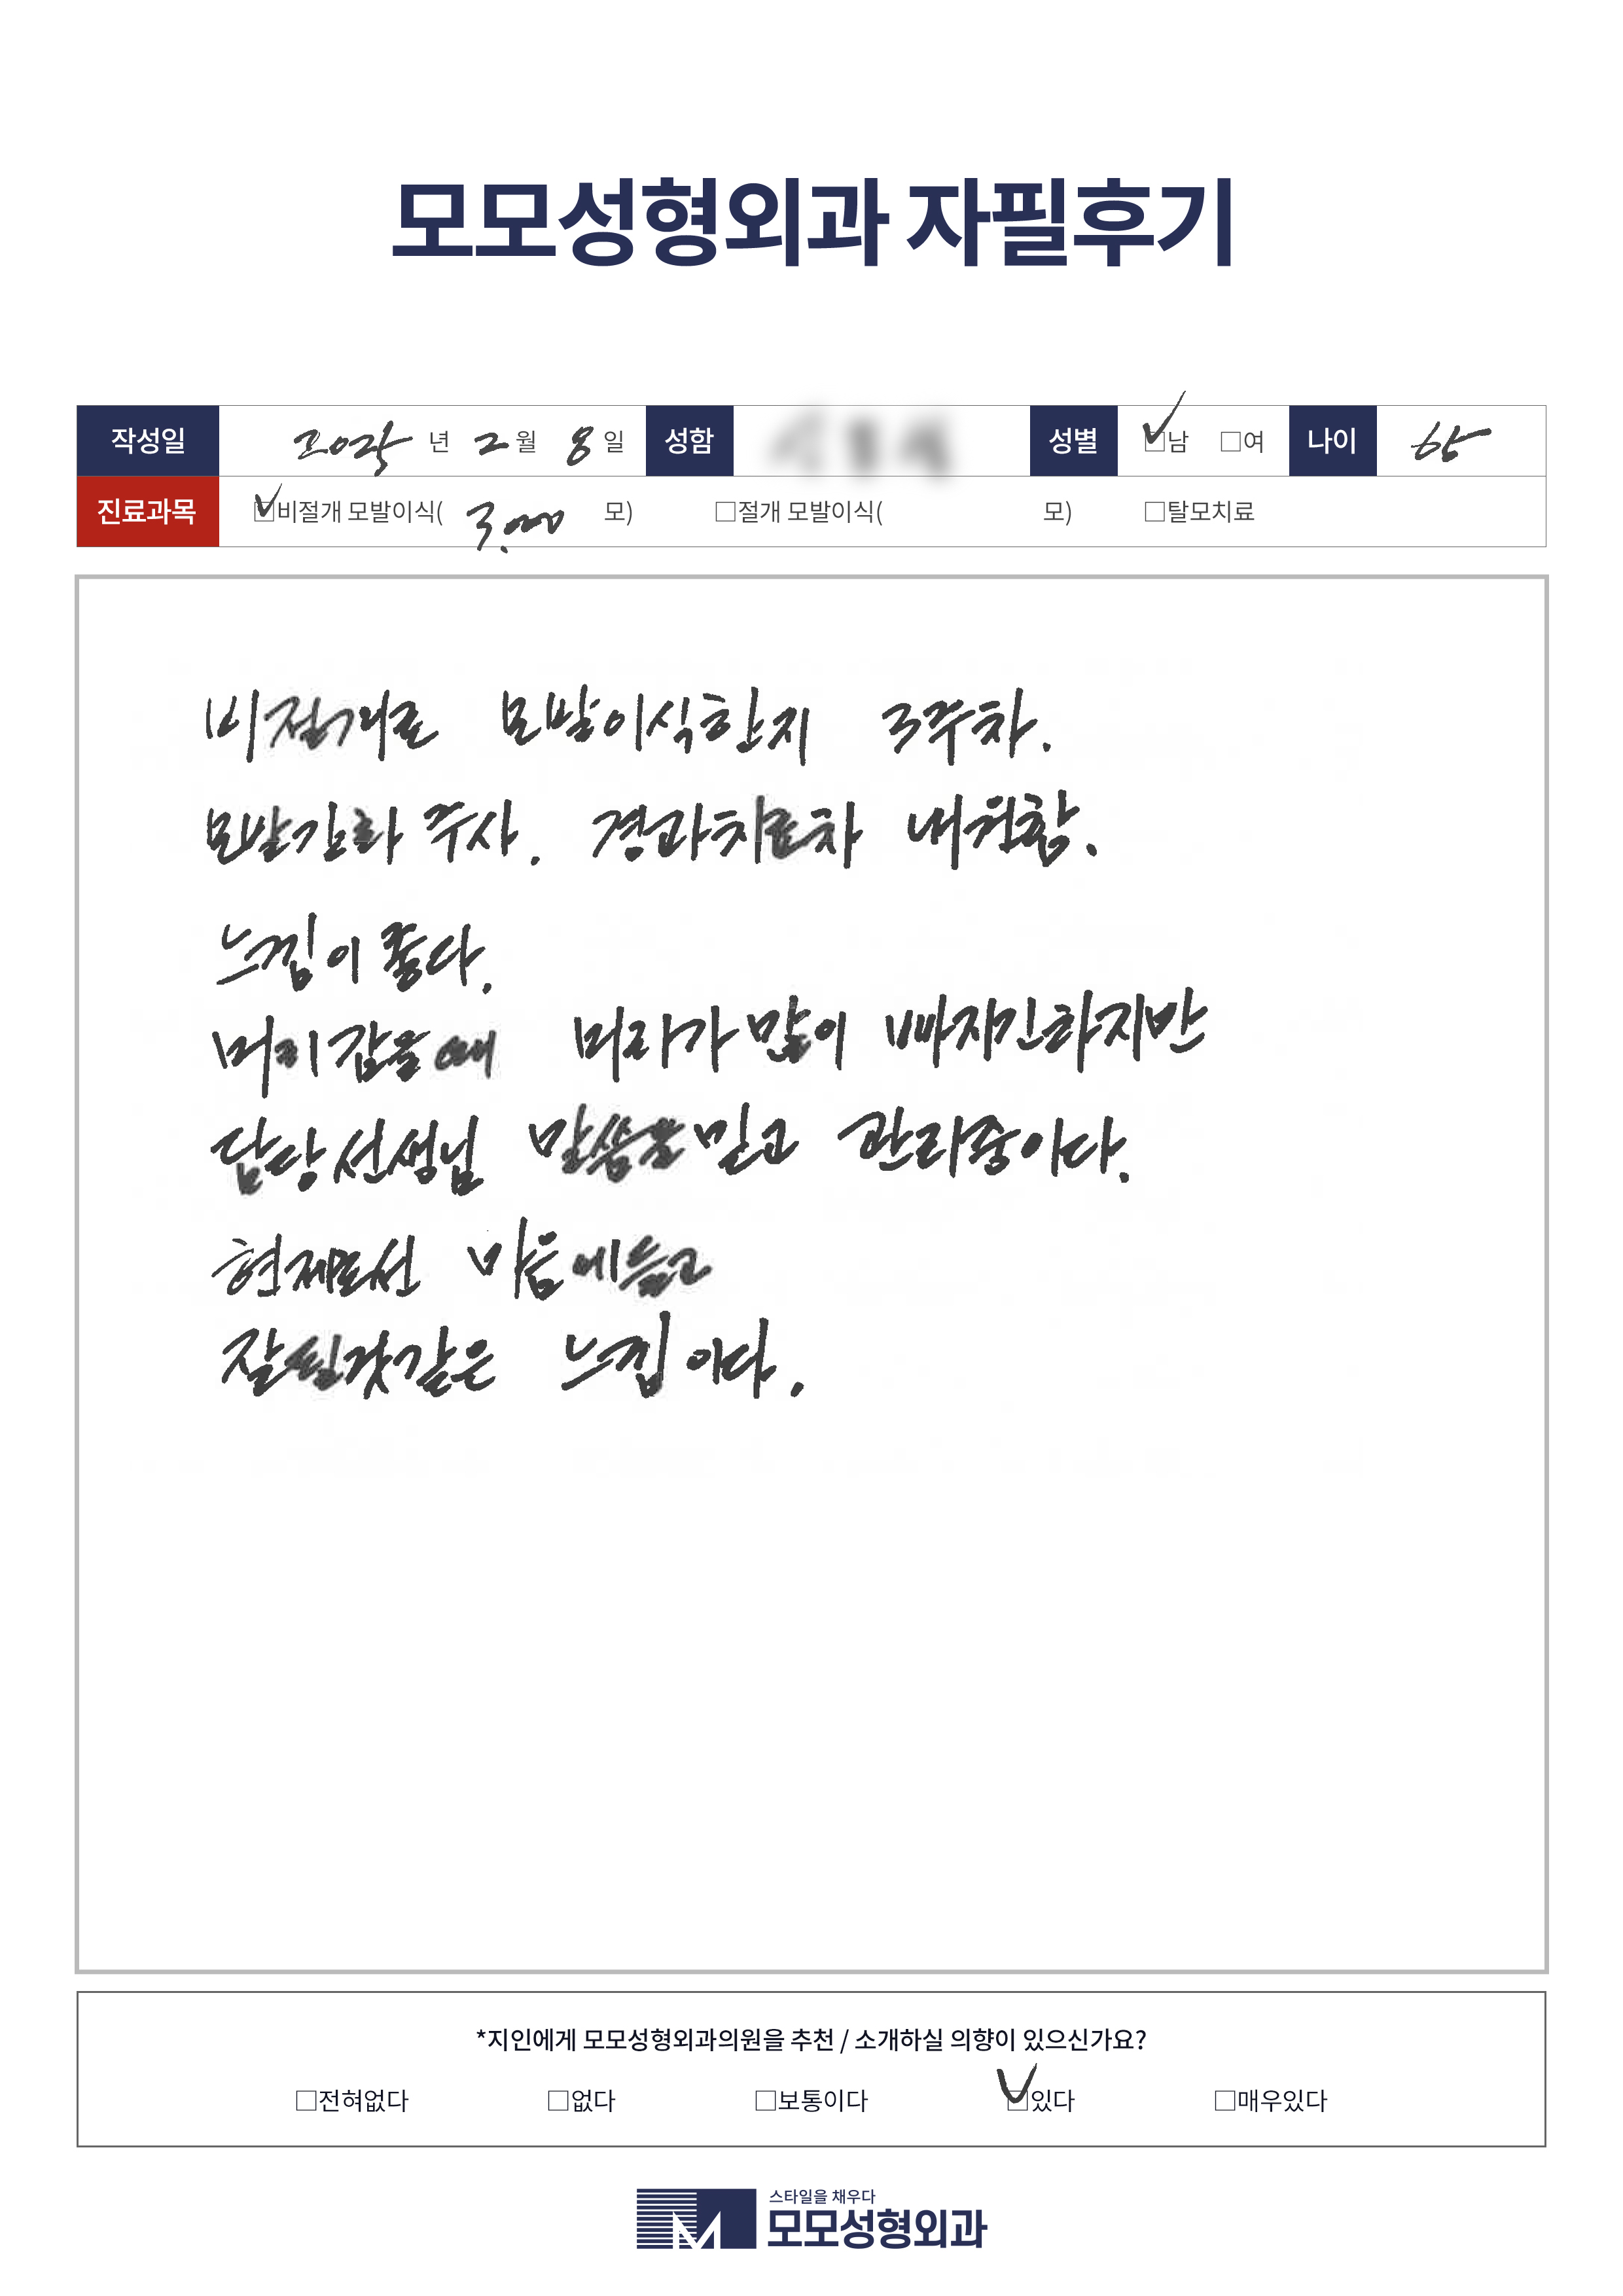 모모성형외과 자필후기
작성일 년 2월 8일 성함 성별 ☑남 □여 나이
진료과목 ☑비절개 모발이식( 3,000 모) □절개 모발이식( 모) □탈모치료
비절개로 모발이식한지 3주차.
모발강화 주사. 경과치료차 내원함.
느낌이 좋다.
머리 감을때 머리가 많이 빠지긴하지만
담당선생님 말씀을 믿고 관리중이다.
현재로선 마음에 들고
잘될것같은 느낌이다.
*지인에게 모모성형외과의원을 추천 / 소개하실 의향이 있으신가요?
□전혀없다 □없다 □보통이다 ☑있다 □매우있다
스타일을 채우다
모모성형외과